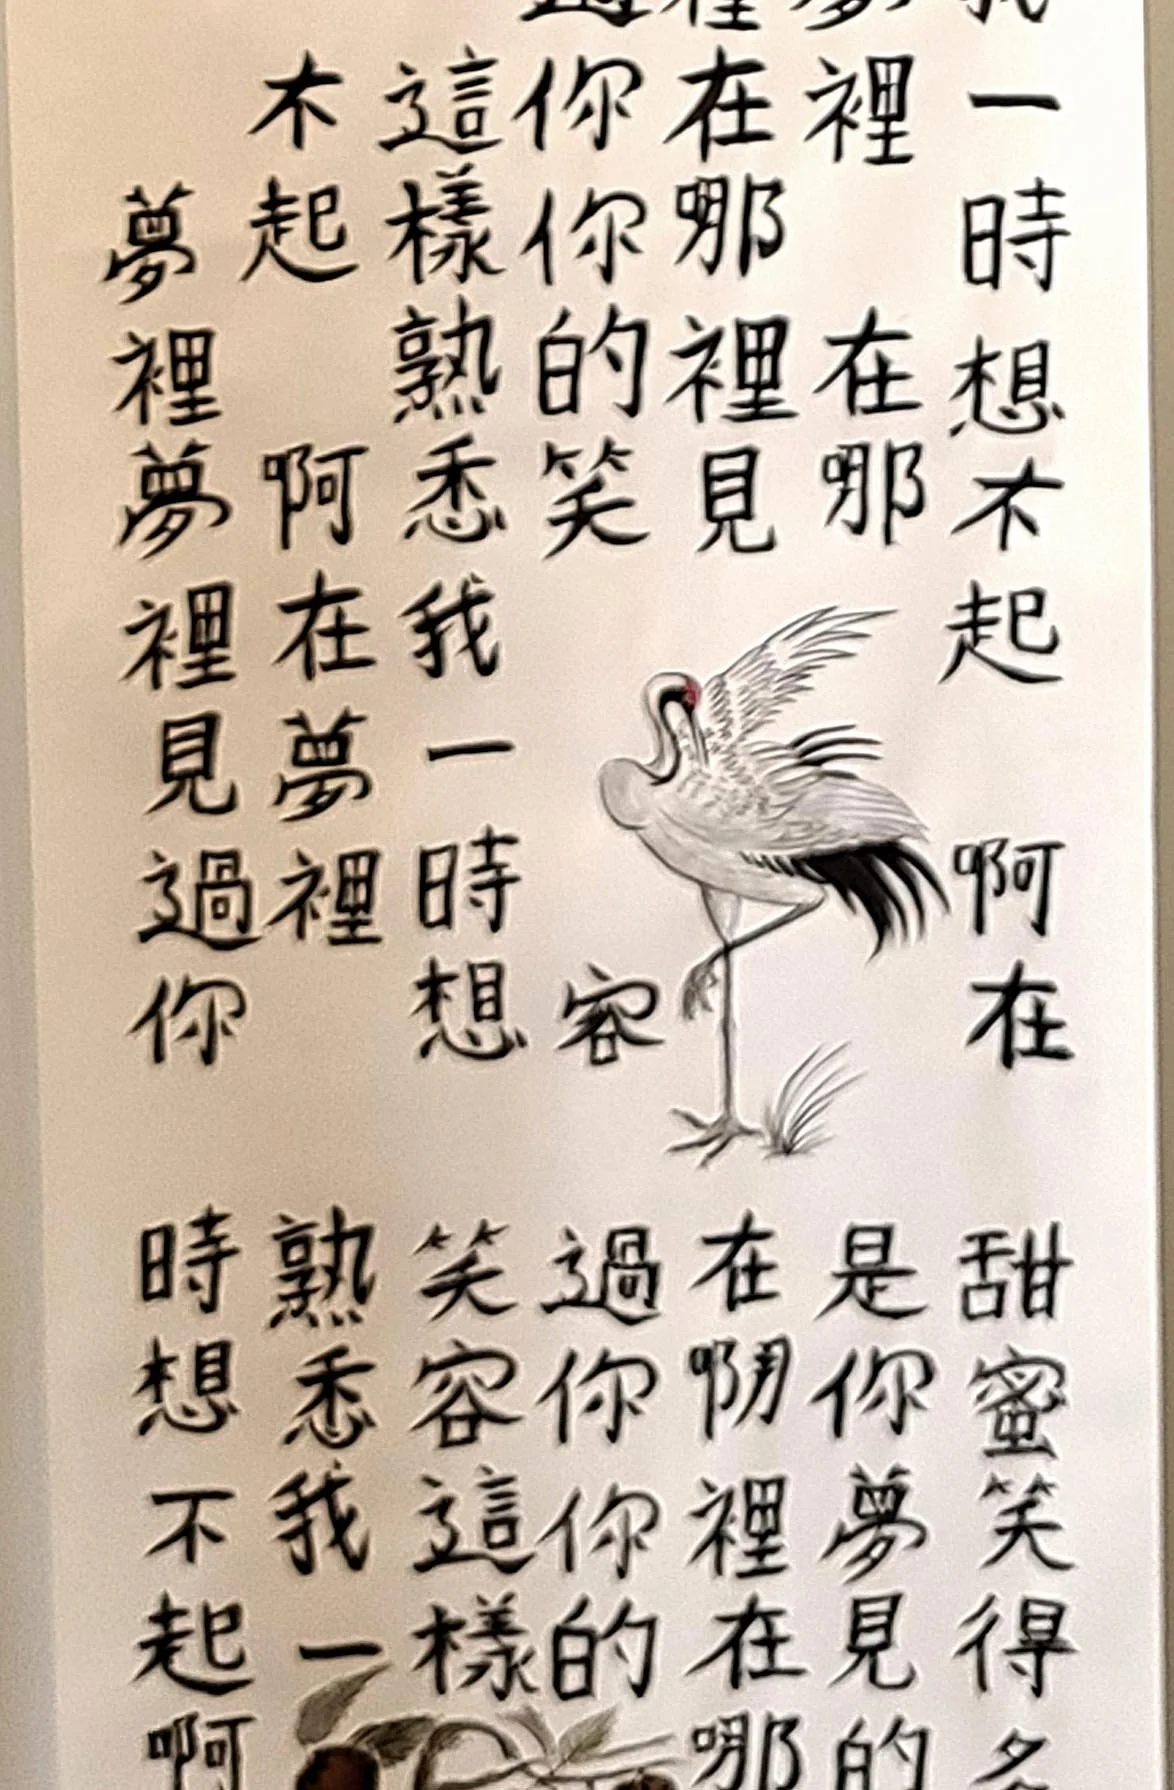 我一時想不起 啊在
夢裡 在哪
裡在哪裡見
過你你的笑 容
這樣熟悉我一時想
不起 啊在夢裡
夢裡夢裡見過你
甜蜜笑得多
是你夢見的
在哪裡在哪
過你你的
笑容這樣
熟悉我一
時想不起啊